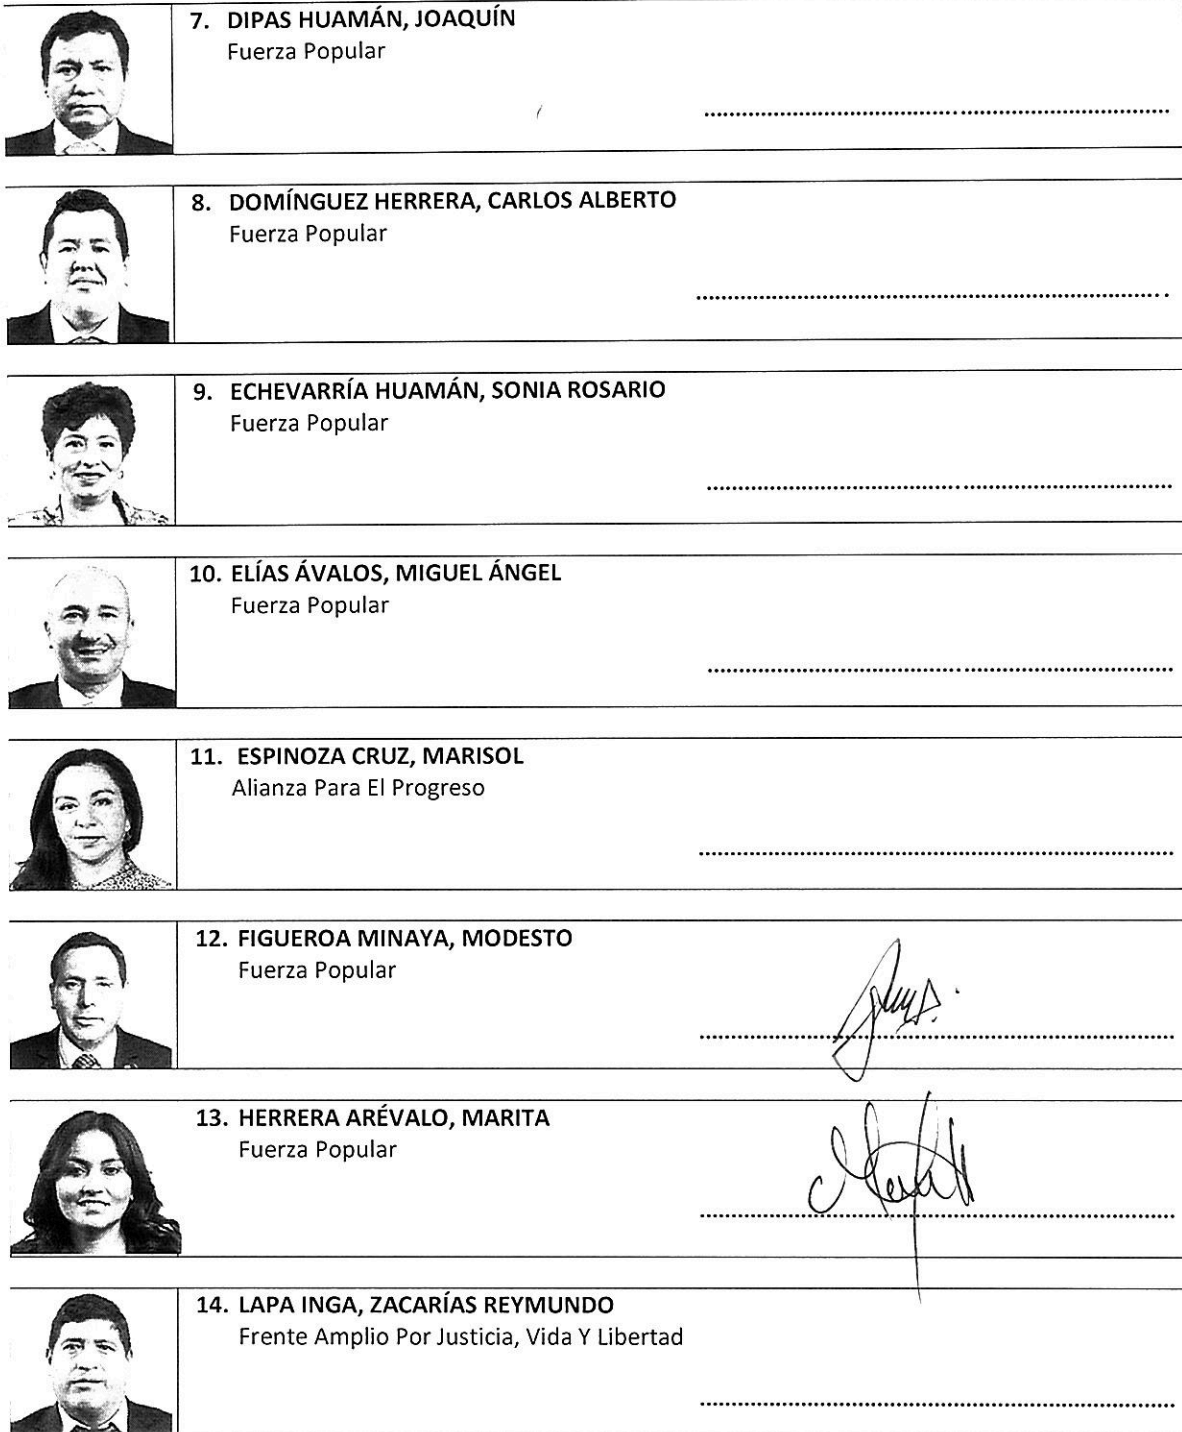 7. DIPAS HUAMÁN, JOAQUÍN
Fuerza Popular
8. DOMÍNGUEZ HERRERA, CARLOS ALBERTO
Fuerza Popular
9. ECHEVARRÍA HUAMÁN, SONIA ROSARIO
Fuerza Popular
10. ELÍAS ÁVALOS, MIGUEL ÁNGEL
Fuerza Popular
11. ESPINOZA CRUZ, MARISOL
Alianza Para El Progreso
12. FIGUEROA MINAYA, MODESTO
Fuerza Popular
13. HERRERA ARÉVALO, MARITA
Fuerza Popular
14. LAPA INGA, ZACARÍAS REYMUNDO
Frente Amplio Por Justicia, Vida Y Libertad